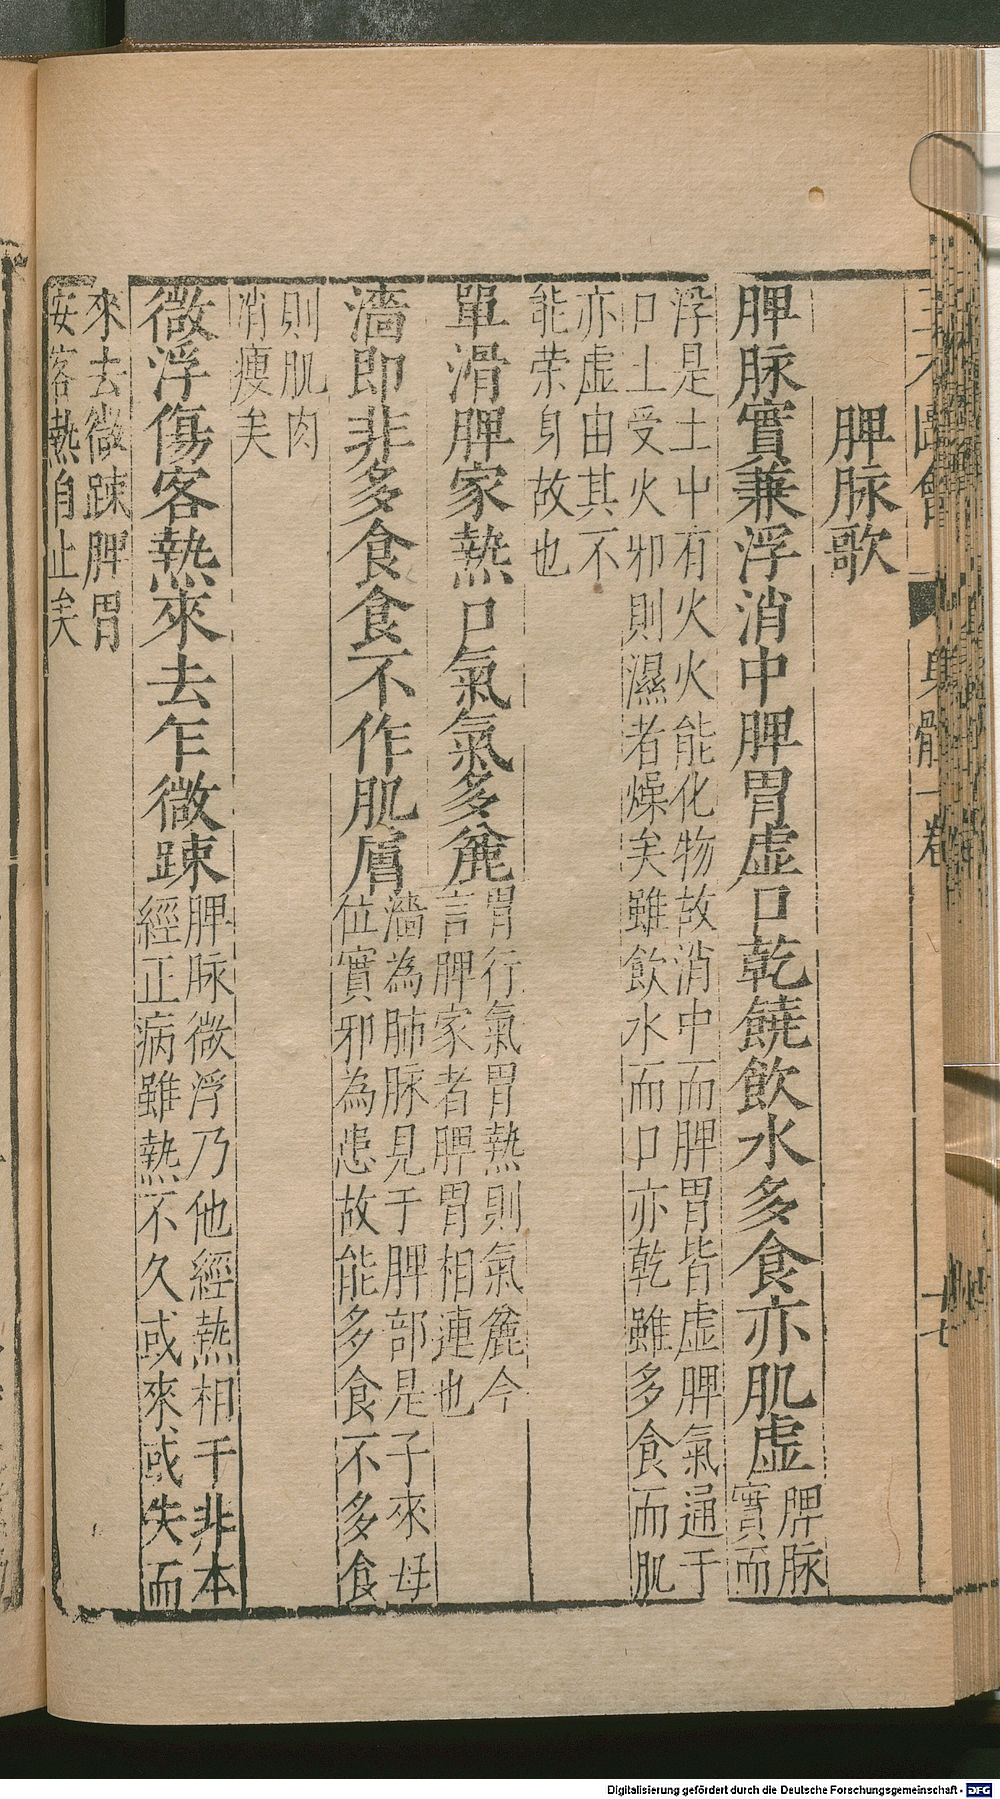 脾脉歌
脾脉實兼浮消中脾胃虛口乾饒飲水多食亦肌虛脾脉
實而
浮是土中有火火能化物故消中而脾胃皆虛脾氣通于
口土受火邪則濕者燥矣雖飲水而口亦乾雖多食而肌
亦虛由其不
能荣身故也
單滑脾家熱尸氣氣多麄胃行氣胃熱則氣麄今
言脾家者脾胃相連也
濇即非多食食不作肌膚濇為肺脉見于脾部是子來母
位實邪為患故能多食不多食
則肌肉
消瘦矣
微浮傷客熱來去乍微踈脾脉微浮乃他經熱相干非本
經正病雖熱不久或來或失而
來去微踈脾胃
安客熱自止矣
Digitalisierung gefördert durch die Deutsche Forschungsgemeinschaft - DFG